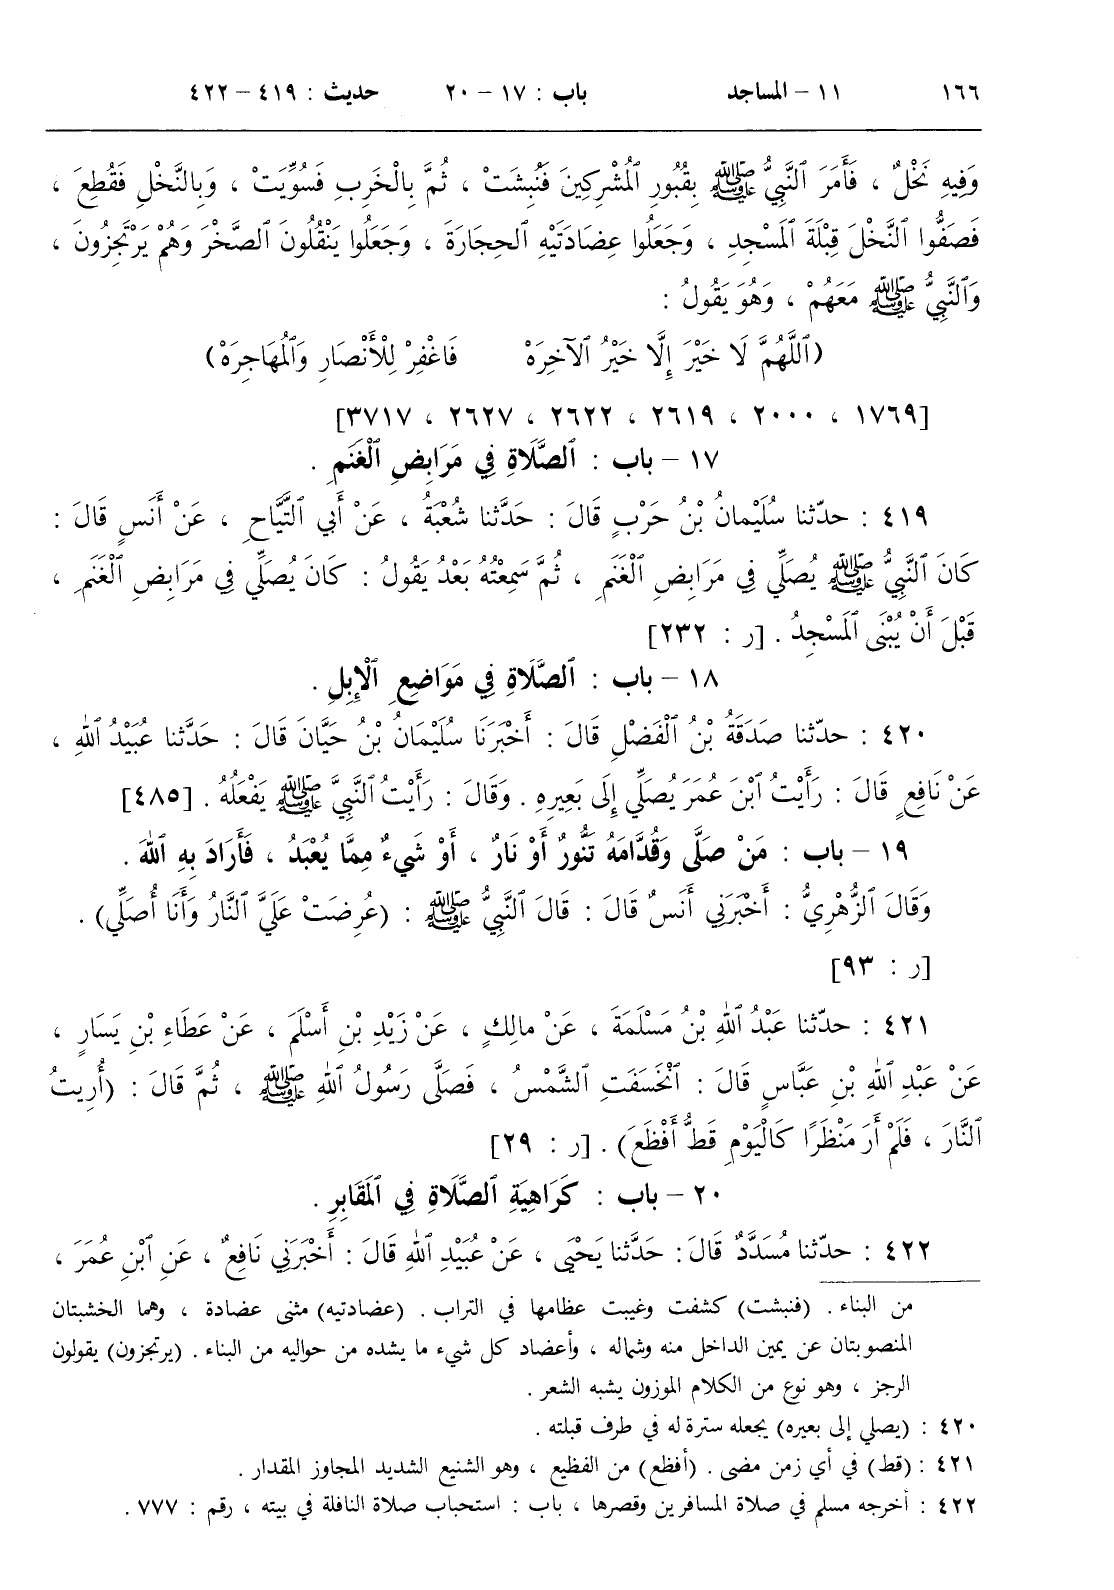 ١٦٦ ١١ - المساجد باب : ١٧ - ٢٠ حديث : ٤١٩ - ٤٢٢
وَفِيهِ نَخْلٌ ، فَأَمَرَ ٱلنَّبِيُّ ﷺ بِقُبُورِ ٱلْمُشْرِكِينَ فَنُبِشَتْ ، ثُمَّ بِالْخَرِبِ فَسُوِّيَتْ ، وَبِالنَّخْلِ فَقُطِعَ ،
فَصَفُّوا ٱلنَّخْلَ قِبْلَةَ ٱلْمَسْجِدِ ، وَجَعَلُوا عِضَادَتَيْهِ ٱلحِجَارَةَ ، وَجَعَلُوا يَنْقُلُونَ ٱلصَّخْرَ وَهُمْ يَرْتَجِزُونَ ،
وَٱلنَّبِيُّ ﷺ مَعَهُمْ ، وَهُوَ يَقُولُ :
(ٱللَّهُمَّ لَا خَيْرَ إِلَّا خَيْرُ ٱلآخِرَهْ فَاغْفِرْ لِلْأَنْصَارِ وَٱلْمُهَاجِرَهْ)
[١٧٦٩ ، ٢٠٠٠ ، ٢٦١٩ ، ٢٦٢٢ ، ٢٦٢٧ ، ٣٧١٧]
١٧ - باب : ٱلصَّلَاةِ فِي مَرَابِضِ ٱلْغَنَمِ .
٤١٩ : حدّثنا سُلَيْمانُ بْنُ حَرْبٍ قَالَ : حَدَّثنا شُعْبَةُ ، عَنْ أَبِي ٱلتَّيَّاحِ ، عَنْ أَنَسٍ قَالَ :
كَانَ ٱلنَّبِيُّ ﷺ يُصَلِّي فِي مَرَابِضِ ٱلْغَنَمِ ، ثُمَّ سَمِعْتُهُ بَعْدُ يَقُولُ : كَانَ يُصَلِّي فِي مَرَابِضِ ٱلْغَنَمِ ،
قَبْلَ أَنْ يُبْنَى ٱلْمَسْجِدُ . [ر : ٢٣٢]
١٨ - باب : ٱلصَّلَاةِ فِي مَوَاضِعِ ٱلْإِبِلِ .
٤٢٠ : حدّثنا صَدَقَةُ بْنُ ٱلْفَضْلِ قَالَ : أَخْبَرَنَا سُلَيْمانُ بْنُ حَيَّانَ قَالَ : حَدَّثنا عُبَيْدُ ٱللهِ ،
عَنْ نَافِعٍ قَالَ : رَأَيْتُ ٱبْنَ عُمَرَ يُصَلِّي إِلَى بَعِيرِهِ . وَقَالَ : رَأَيْتُ ٱلنَّبِيَّ ﷺ يَفْعَلُهُ . [٤٨٥]
١٩ - باب : مَنْ صَلَّى وَقُدَّامَهُ تَنُّورٌ أَوْ نَارٌ ، أَوْ شَيْءٌ مِمَّا يُعْبَدُ ، فَأَرَادَ بِهِ ٱللهَ .
وَقَالَ ٱلزُّهْرِيُّ : أَخْبَرَنِي أَنَسٌ قَالَ : قَالَ ٱلنَّبِيُّ ﷺ : (عُرِضَتْ عَلَيَّ النَّارُ وَأَنَا أُصَلِّي) .
[ر : ٩٣]
٤٢١ : حدّثنا عَبْدُ ٱللهِ بْنُ مَسْلَمَةَ ، عَنْ مالِكٍ ، عَنْ زَيْدِ بْنِ أَسْلَمَ ، عَنْ عَطَاءِ بْنِ يَسَارٍ ،
عَنْ عَبْدِ ٱللهِ بْنِ عَبَّاسٍ قَالَ : ٱنْخَسَفَتِ ٱلشَّمْسُ ، فَصَلَّى رَسُولُ ٱللهِ ﷺ ، ثُمَّ قَالَ : (أُرِيتُ
ٱلنَّارَ ، فَلَمْ أَرَ مَنْظَرًا كَالْيَوْمِ قَطُّ أَفْظَعَ) . [ر : ٢٩]
٢٠ - باب : كَرَاهِيَةِ ٱلصَّلَاةِ فِي ٱلْمَقَابِرِ .
٤٢٢ : حدّثنا مُسَدَّدٌ قَالَ : حَدَّثنا يَحْيَى ، عَنْ عُبَيْدِ ٱللهِ قَالَ : أَخْبَرَنِي نَافِعٌ ، عَنِ ٱبْنِ عُمَرَ ،
من البناء . (فنبشت) كشفت وغيبت عظامها في التراب . (عضادتيه) مثنى عضادة ، وهما الخشبتان
المنصوبتان عن يمين الداخل منه وشماله ، وأعضاد كل شيء ما يشده من حواليه من البناء . (يرتجزون) يقولون
الرجز ، وهو نوع من الكلام الموزون يشبه الشعر .
٤٢٠ : (يصلي إلى بعيره) يجعله سترة له في طرف قبلته .
٤٢١ : (قط) في أي زمن مضى . (أفظع) من الفظيع ، وهو الشنيع الشديد المجاوز المقدار .
٤٢٢ : أخرجه مسلم في صلاة المسافرين وقصرها ، باب : استحباب صلاة النافلة في بيته ، رقم : ٧٧٧ .